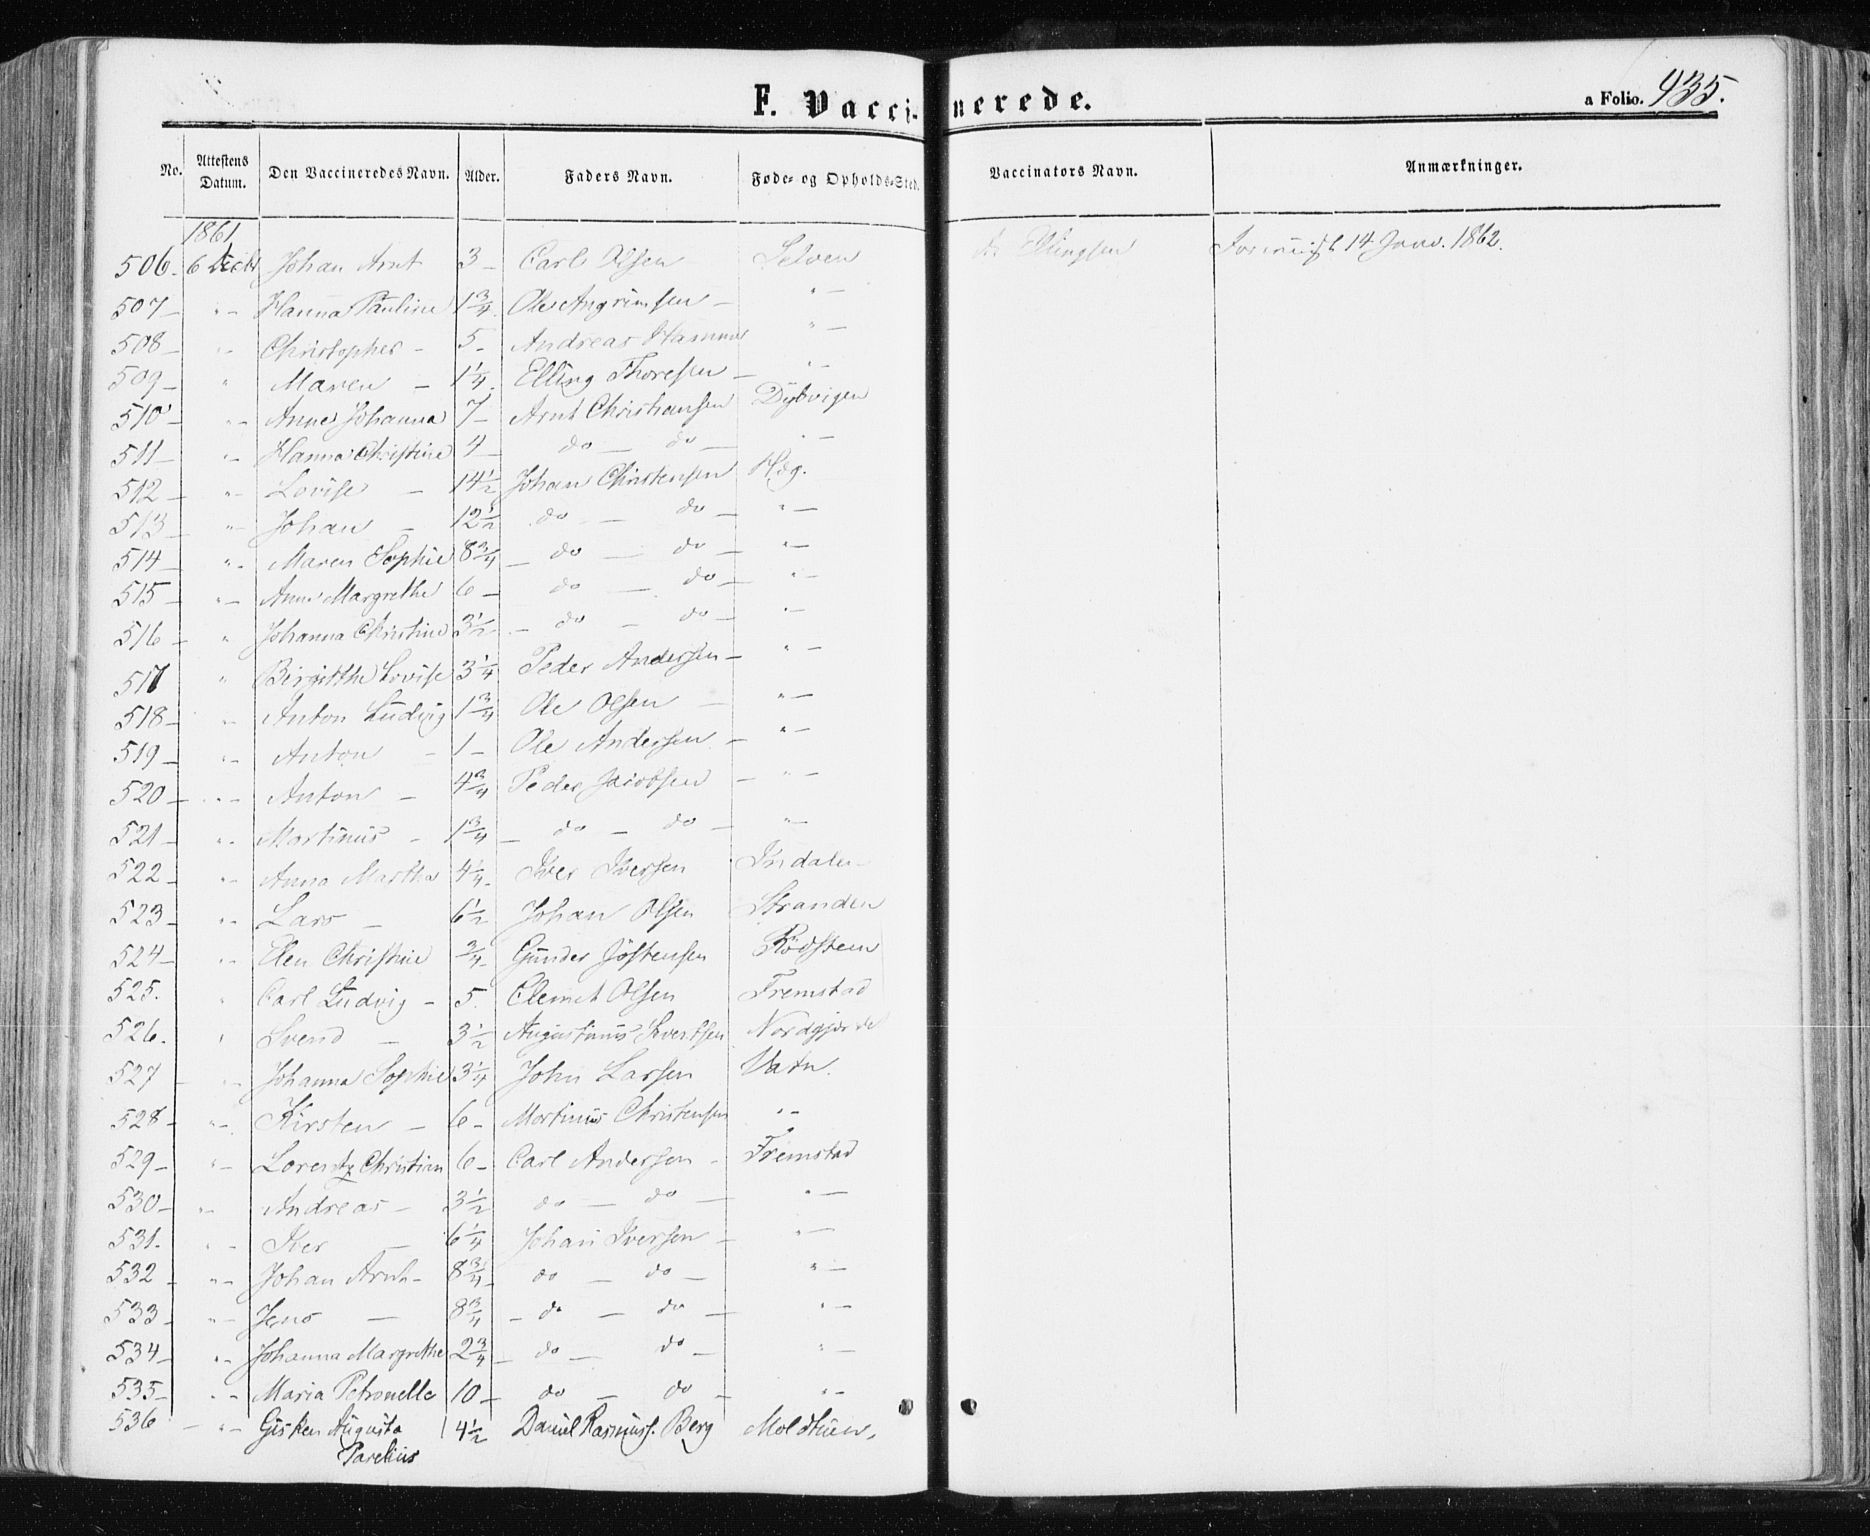 F. Vaccinerede.
a Folio. 435.
No. Attestens Datum. Den Vaccineredes Navn. Alder. Faders Navn. Føde- og Opholds-Sted. Vaccinators Navn. Anmærkninger.
1861
506. 6 Decbr Johan Arnt 3 – Carl Olsen Selven Ellingsen 14 Janv. 1862.
507 – " – Hanna Pauline 1 3/4. Ole Angrimsen – " –
508 – " – Christopher – 5. Andreas Hammer " –
509 – " Maren – 1 1/4. Elling Thoresen – " –
510 " – Anne Johanna 7 – Arnt Christiansen Dybvigen
511 – " – Hanna Christine 4 – do – do – " –
512 – " – Lovise – 14 1/2 Johan Christensen Hdg.
513 – " – Johan – 12 1/2 do – do – " –
514 – " – Maren Sophie 8 3/4 – do – do – " –
515 – " – Anne Margrethe 6 – do – do – " –
516 – " Johanna Christine 3 1/2 – do – do – " –
517 " Birgitthe Lovise 3 1/4 Peder Andersen – " –
518 – " – Anton Ludvig 1 3/4 Ole Olsen – " –
519 – " – Anton – 1 – Ole Andersen – " –
520 – " – Anton – 4 3/4 Peder Jacobsen – " –
521 – " – Martinus – 1 3/4 – do – do – " –
522 – " – Anna Martha 4 1/4 – Iver Iversen Indalen
523 – " – Lars – 6 1/2 Johan Olsen Stranden
524 – " – Elen Christine 3/4 – Gunder Jostensen Rødsteen
525. " Carl Ludvig – 5. Clemet Olsen Fremstad
526. " Svend – 3 1/2 Augustinus Sivertsen Nordgjerde
527 – " – Johanna Sophie 3 1/4 John Larsen Vatn.
528 – " – Kirsten – 6 – Martinus Christensen " –
529 – " – Lorentz Christian 6 – Carl Andersen – Fremstad
530 – " – Andreas – 3 1/2 do – do – " –
531. " – Iver – 6 1/4 Johan Iversen – " –
532 – " – Johan Arnt – 8 3/4 – do – do – " –
533 – " – Jens – 8 3/4 – do – do – " –
534 – " – Johanna Margrethe 2 3/4 – do – do – " –
535 – " – Maria Petronelle 10 – do – do – " –
536 – " – Gisken Augusta 4 1/2 Daniel Rasmuss. Berg Moldtuen,
Parelius